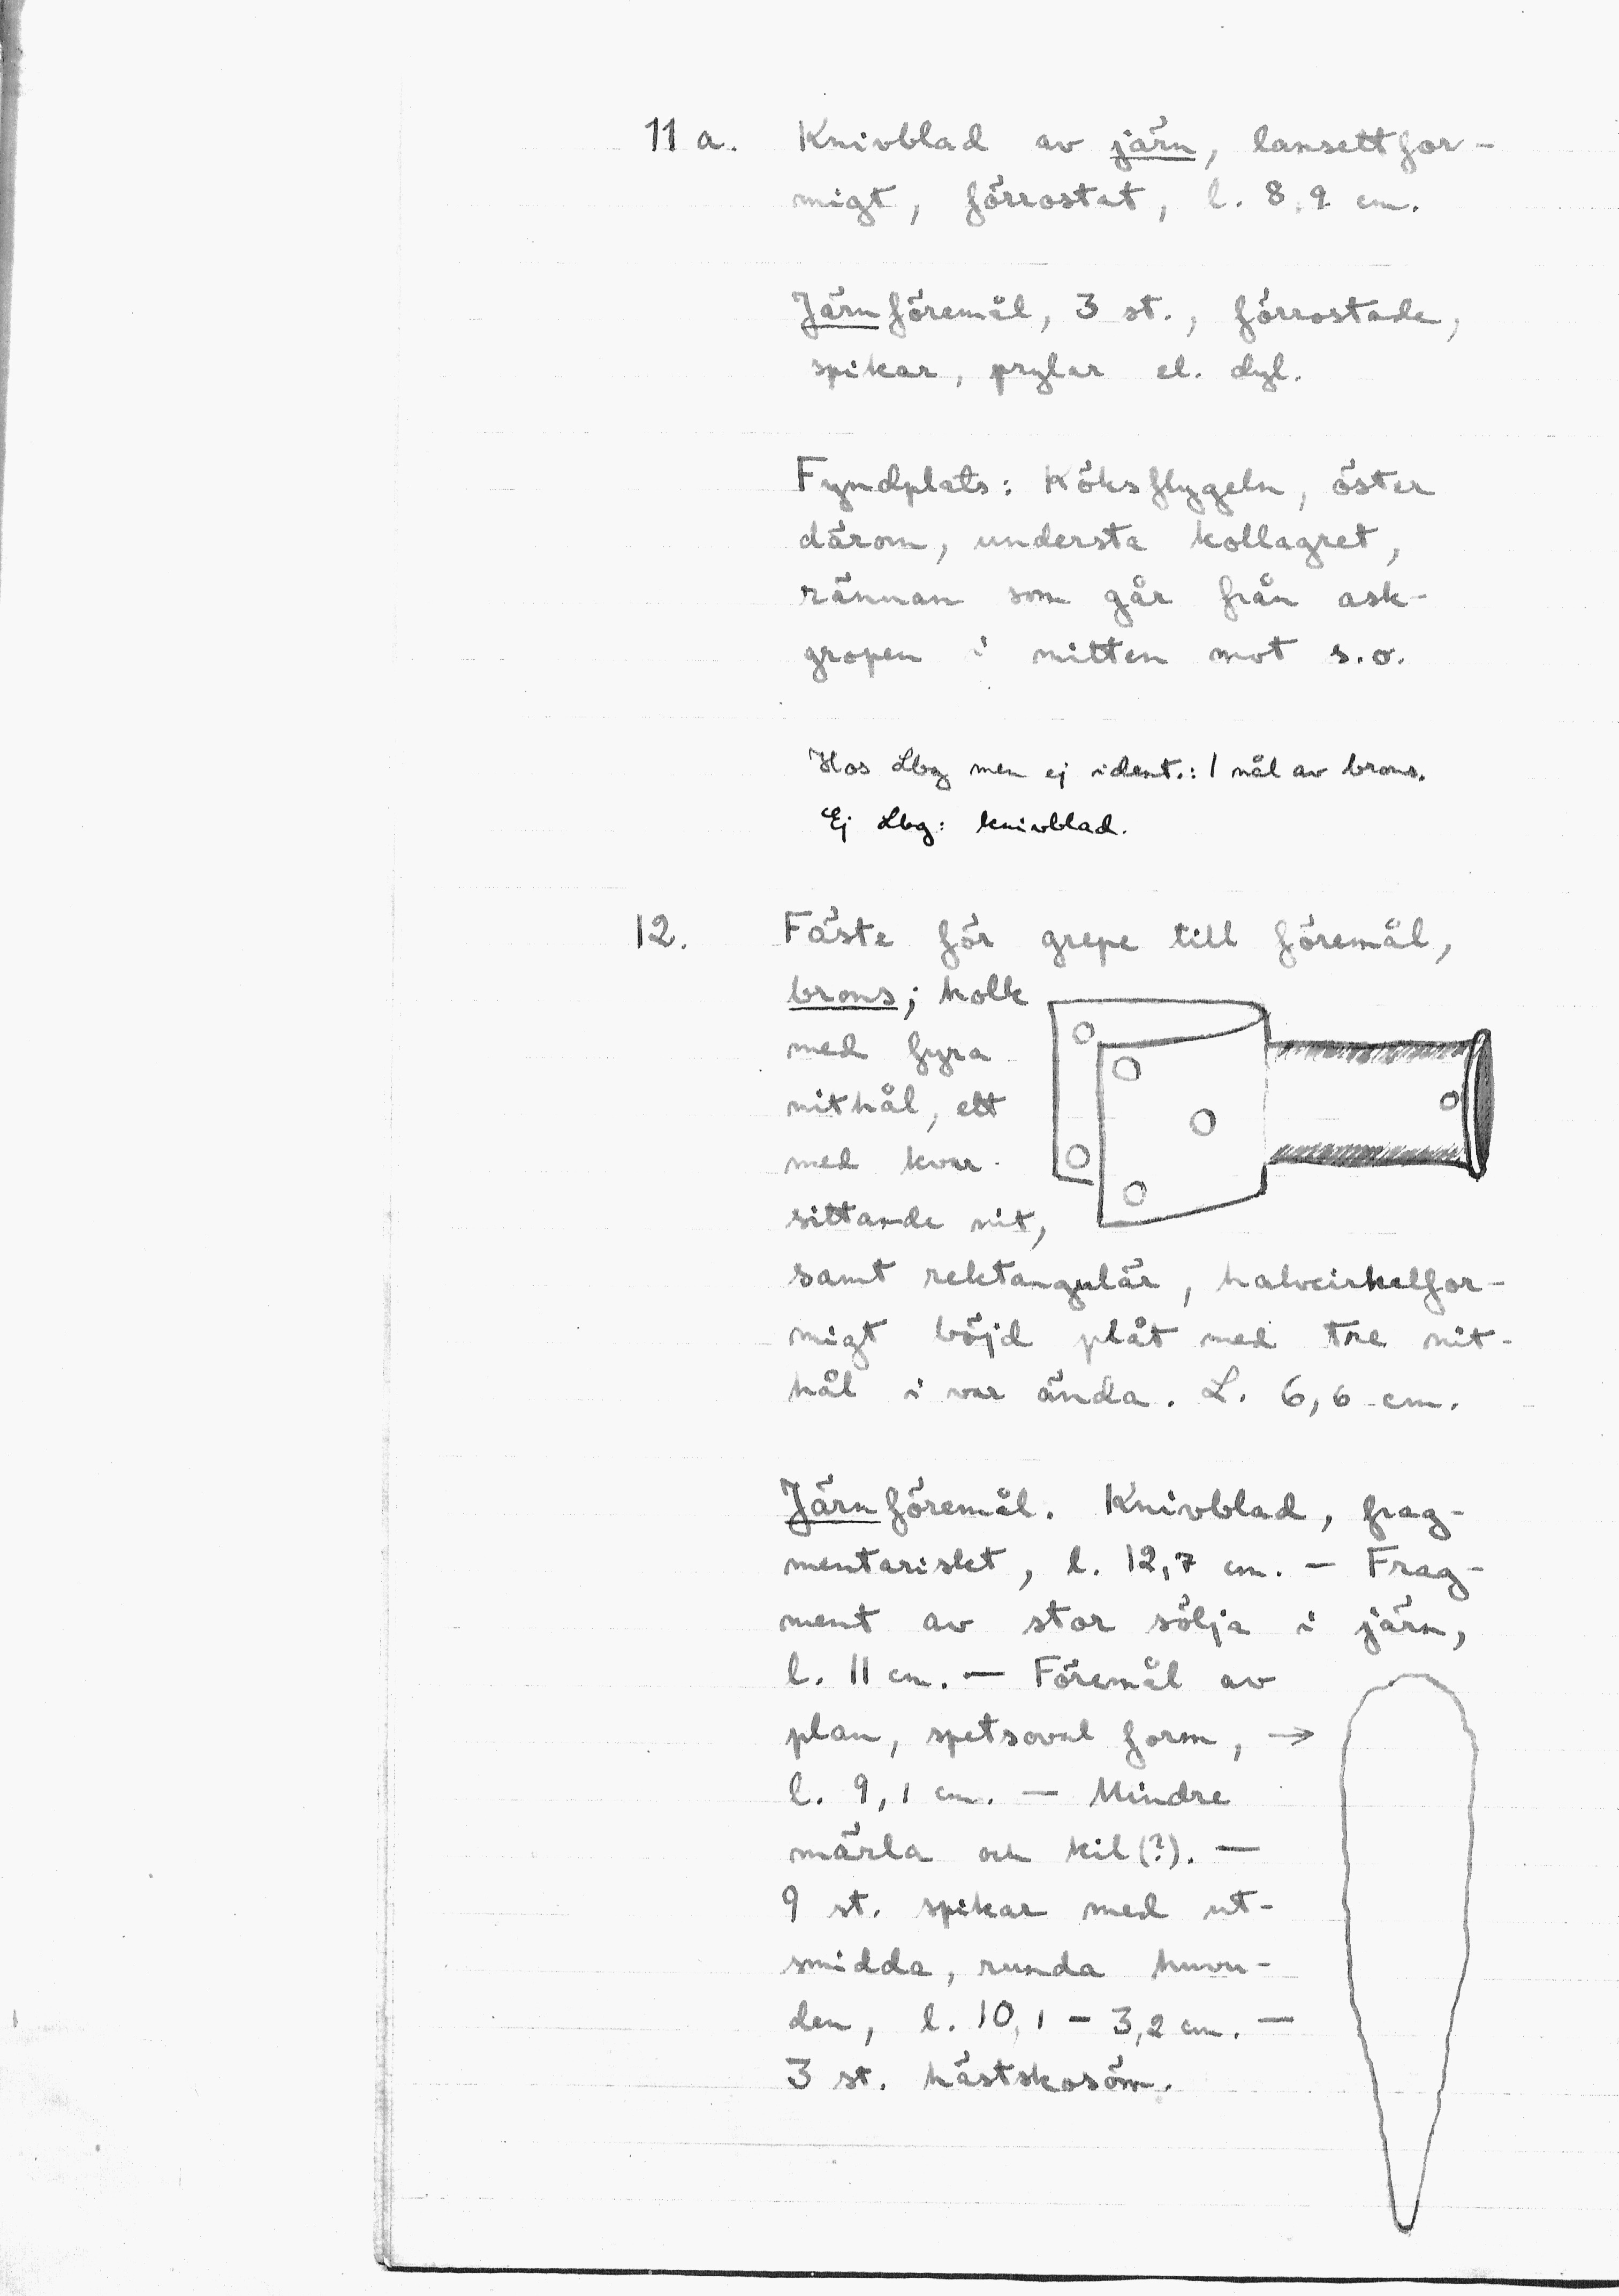 11 a. Knivblad av järn, lansettfor-
migt, förrostat, l. 8,9 cm.
Järnföremål, 3 st., förrostade,
spikar, prylar el. dyl.
Fyndplats: Köksflygeln, öster
därom, understa kollagret,
rännan som går från ask-
gropen i mitten mot s.o.
Hos Lbg men ej ident.: 1 nål av brons.
Ej Lbg: knivblad.
12. Fäste för grepe till föremål,
brons; holk
med fyra
nithål, ett
med kvar-
sittande nit,
samt rektangulär, halvcirkelfor-
migt böjd plåt med tre nit-
hål i var ända. L. 6,6 cm.
Järnföremål. Knivblad, frag-
mentariskt, l. 12,7 cm. – Frag-
ment av stor sölja i järn,
l. 11 cm. – Föremål av
plan, spetsoval form, →
l. 9,1 cm. – Mindre
märla och kil(?). –
9 st. spikar med ut-
smidda, runda huvu-
den, l. 10,1 – 3,2 cm. –
3 st. hästskosöm.